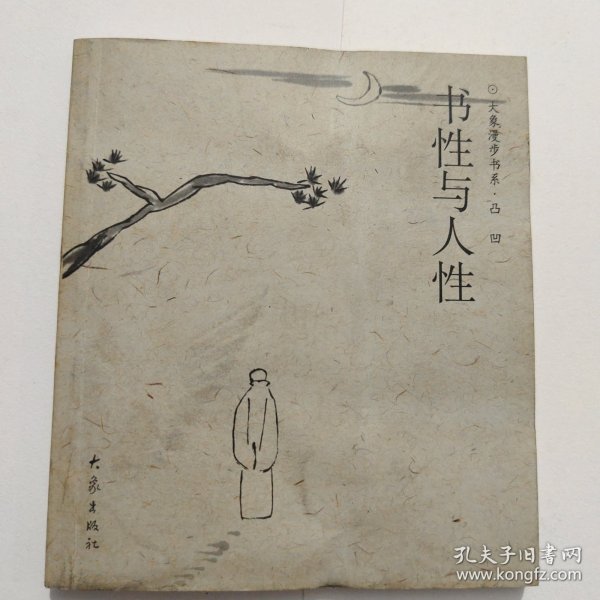 ⊙大象漫步书系·凸 凹
书性与人性
大象出版社
孔夫子旧书网
www.kongfz.com